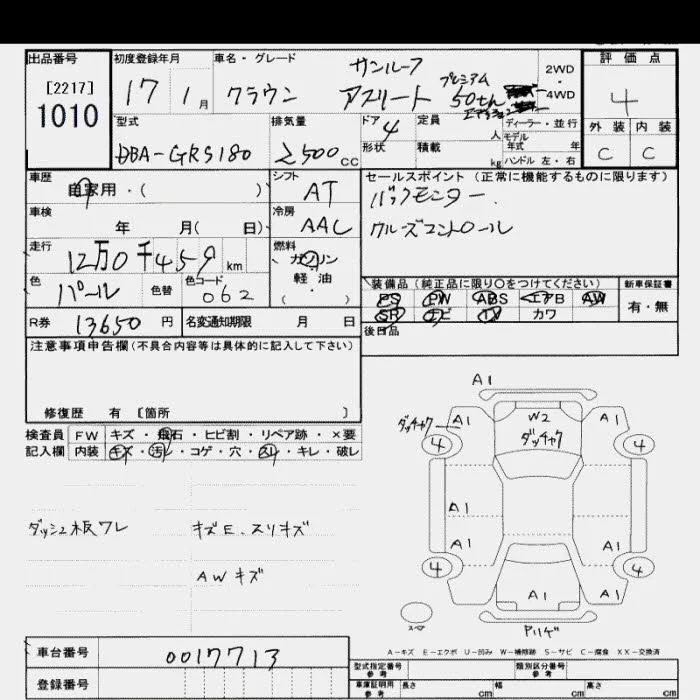 出品番号
[2217]
1010
初度登録年月
17 年 1 月
車名・グレード
サンルーフ
クラウン アスリート プレミアム
50th
2WD
・
4WD
評価点
4
外装 内装
C C
型式
DBA-GRS180
排気量
2500 CC
ドア
4
形状
定員
人
積載
kg
ディーラー・並行
モデル
年式 年
ハンドル 左・右
車歴
自家用・( )
シフト
AT
車検
年 月( 日)
冷房
AAC
走行
12万0千459 km
燃料
ガソリン
・
軽油
・
( )
色
パール
色替
色コード
062
R券
13650 円
名変通知期限 月 日
セールスポイント (正常に機能するものに限ります)
バックモニター.
クルーズコントロール
装備品 (純正品に限り○をつけてください)
PS PW ABS エアB AW
SR ナビ TV カワ
新車保証書
有・無
後日品
注意事項申告欄(不具合内容等は具体的に記入して下さい)
修復歴 有 [箇所 ]
検査員
記入欄
FW キズ・飛石・ヒビ割・リペア跡・×要
内装 キズ・汚レ・コゲ・穴・スリ・キレ・破レ
ダッシュ板ワレ
キズE.スリキズ
AWキズ
A1
ダッチャク
A1
W2
ダッチャク
A1
4
4
A1
A1
A1
4
4
A1
A1
スペア
A-キズ E-エクボ U-凹み W-補修跡 S-サビ C-腐食 XX-交換済
車台番号
0017713
登録番号
型式指定番号
参考
類別区分番号
参考
車庫証明用
参考
長さ cm
幅 cm
高さ cm